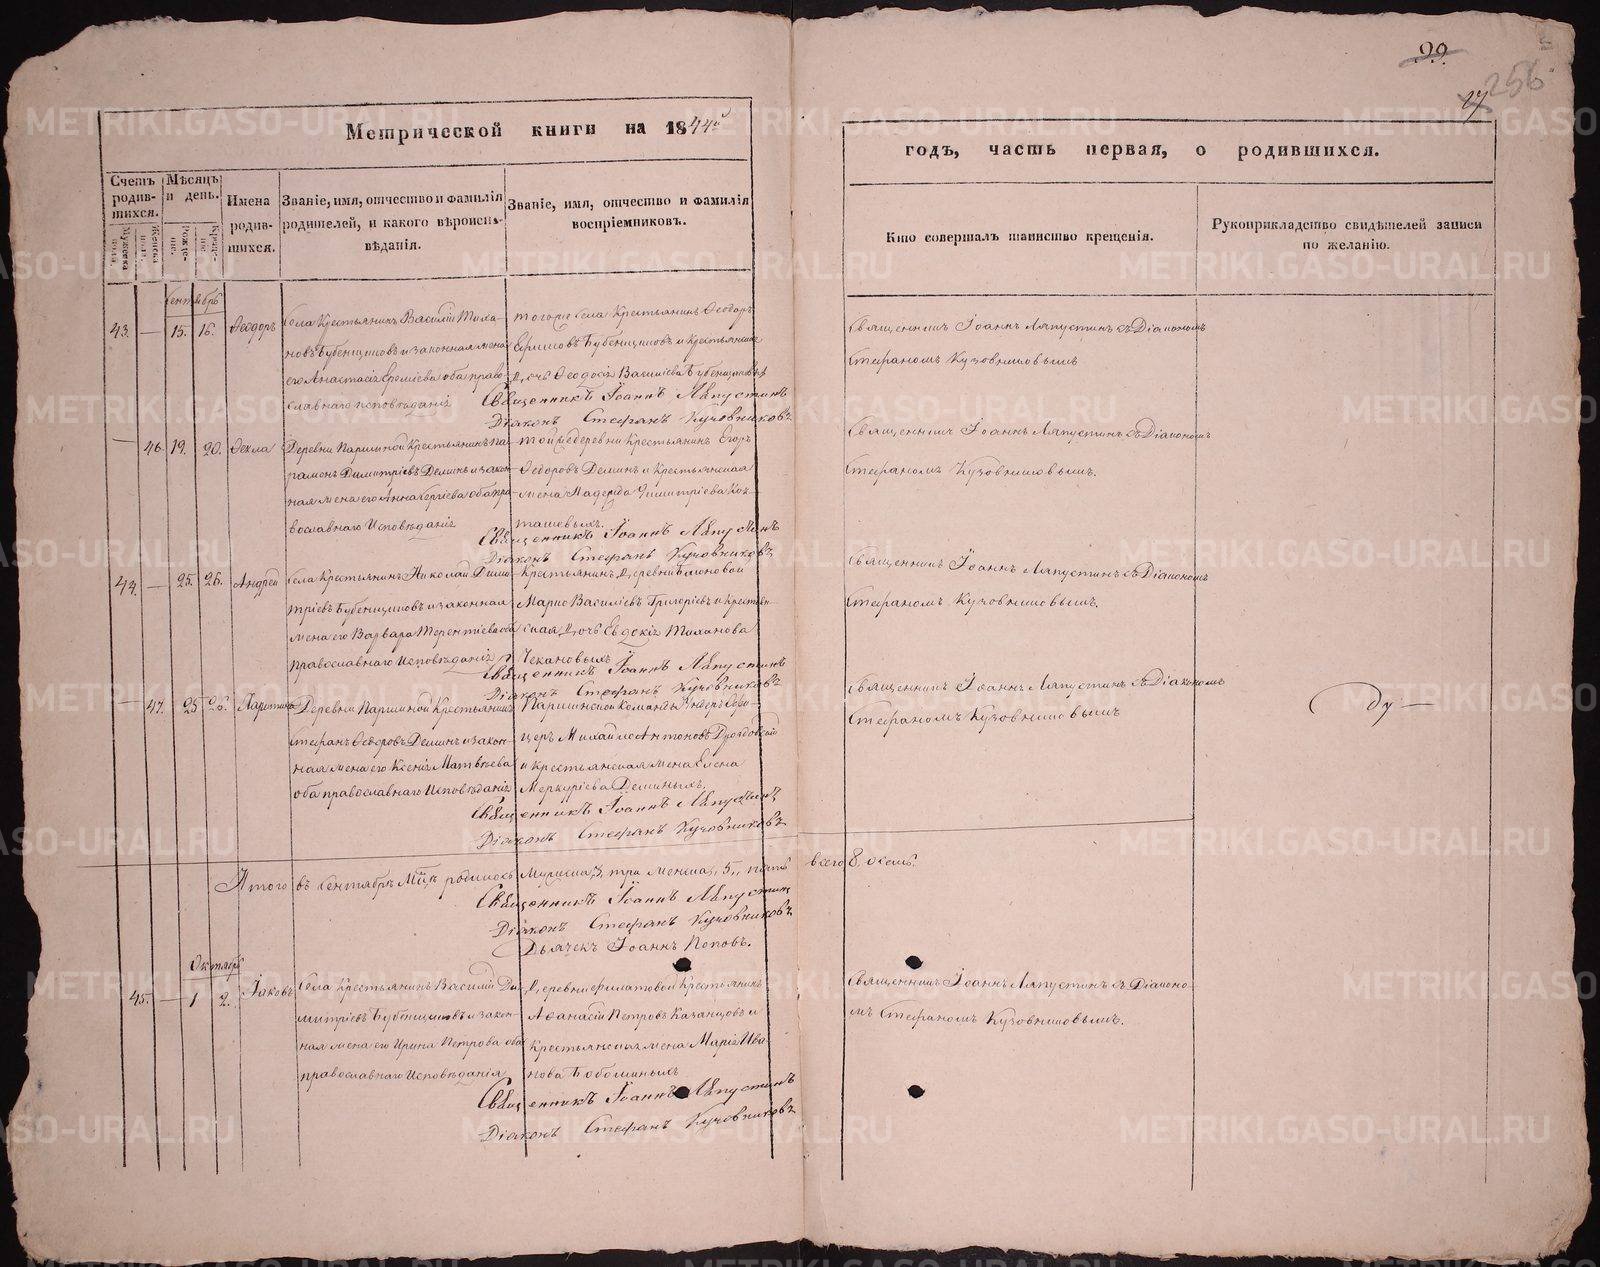 99.
27
256
Метрической книги на 1844й
годъ, часть первая, о родившихся.
Счетъ родив-шихся.
Мѣсяцъ и день.
Имена родив-шихся.
Званіе, имя, отчество и фамилія родителей, и какого вѣроиспо-вѣданія.
Званіе, имя, отчество и фамилія воспріемниковъ.
Кто совершалъ таинство крещенія.
Рукоприкладство свидѣтелей записи по желанію.
Мужеска пола.
Женска пола.
Рожде-ніе.
Креще-ніе.
Сентябрь
43. — 15. 16. Ѳеодоръ
Села Крестьянинъ Василій Тиха-
новъ Бубенщиковъ и законная жена
его Анастасія Еремѣева оба право-
славнаго исповѣданія
тогоже села Крестьянинъ Ѳеодоръ
Бубенщиковъ и крестьянская
дочь Ѳеодосія Василіева Бубенщикова
Священникъ Іоаннъ Ляпустинъ
Діаконъ Стефанъ Кузовниковъ
Священникъ Іоаннъ Ляпустинъ съ Діакономъ
Стефаномъ Кузовниковымъ
— 46. 19. 20. Ѳекла
Деревни Паршиной Крестьянинъ Па-
рамонъ Димитріевъ Деминъ и закон-
ная жена его Анна Сергіева оба пра-
вославнаго Исповѣданія
Той же деревни Крестьянинъ Егоръ
Ѳедоровъ Деминъ и Крестьянская
жена Надежда Димитріева Кок-
ташевыхъ.
Священникъ Іоаннъ Ляпустинъ
Діаконъ Стефанъ Кузовниковъ
Священникъ Іоаннъ Ляпустинъ съ Діакономъ
Стефаномъ Кузовниковымъ.
44. — 25. 26. Андрей
Села Крестьянинъ Николай Дими-
тріевъ Бубенщиковъ и законная
жена его Варвара Терентіева оба
православнаго Исповѣданія
Крестьянинъ Деревни
Марко Василіевъ Григоріевъ и Крестьян-
ская дочь Евдокія Тиханова
Чекановыхъ
Священникъ Іоаннъ Ляпустинъ
Діаконъ Стефанъ Кузовниковъ
Священникъ Іоаннъ Ляпустинъ съ Діакономъ
Стефаномъ Кузовниковымъ.
— 47. 25 26. Харитина
Деревни Паршиной Крестьянинъ
Стефанъ Ѳедоровъ Деминъ и закон-
ная жена его Ксенія Матвѣева
оба православнаго Исповѣданія
Паршинской Команды Ундеръ Офи-
церъ Михайло Антоновъ Дроздовской
и крестьянская жена Елена
Меркуріева Деминыхъ.
Священникъ Іоаннъ Ляпустинъ
Діаконъ Стефанъ Кузовниковъ
Священникъ Іоаннъ Ляпустинъ съ Діакономъ
Стефаномъ Кузовниковымъ
Итого въ Сентябрѣ Мцѣ родилось Мужеска, 3, три Женска, 5,, пять всего 8, осемь.
Священникъ Іоаннъ Ляпустинъ
Діаконъ Стефанъ Кузовниковъ
Дьячекъ Іоаннъ Поповъ.
Октябрь
45. — 1 2. Іаковъ
Села Крестьянинъ Василій Ди-
митріевъ Бубенщиковъ и закон-
ная жена его Ирина Петрова оба
православнаго Исповѣданія
Деревни Филатовой Крестьянинъ
Аѳанасій Петровъ Казанцовъ и
Крестьянская жена Марія Ива-
нова Бобошиныхъ
Священникъ Іоаннъ Ляпустинъ
Діаконъ Стефанъ Кузовниковъ
Священникъ Іоаннъ Ляпустинъ съ Діаконо-
мъ Стефаномъ Кузовниковымъ.
METRIKI.GASO-URAL.RU